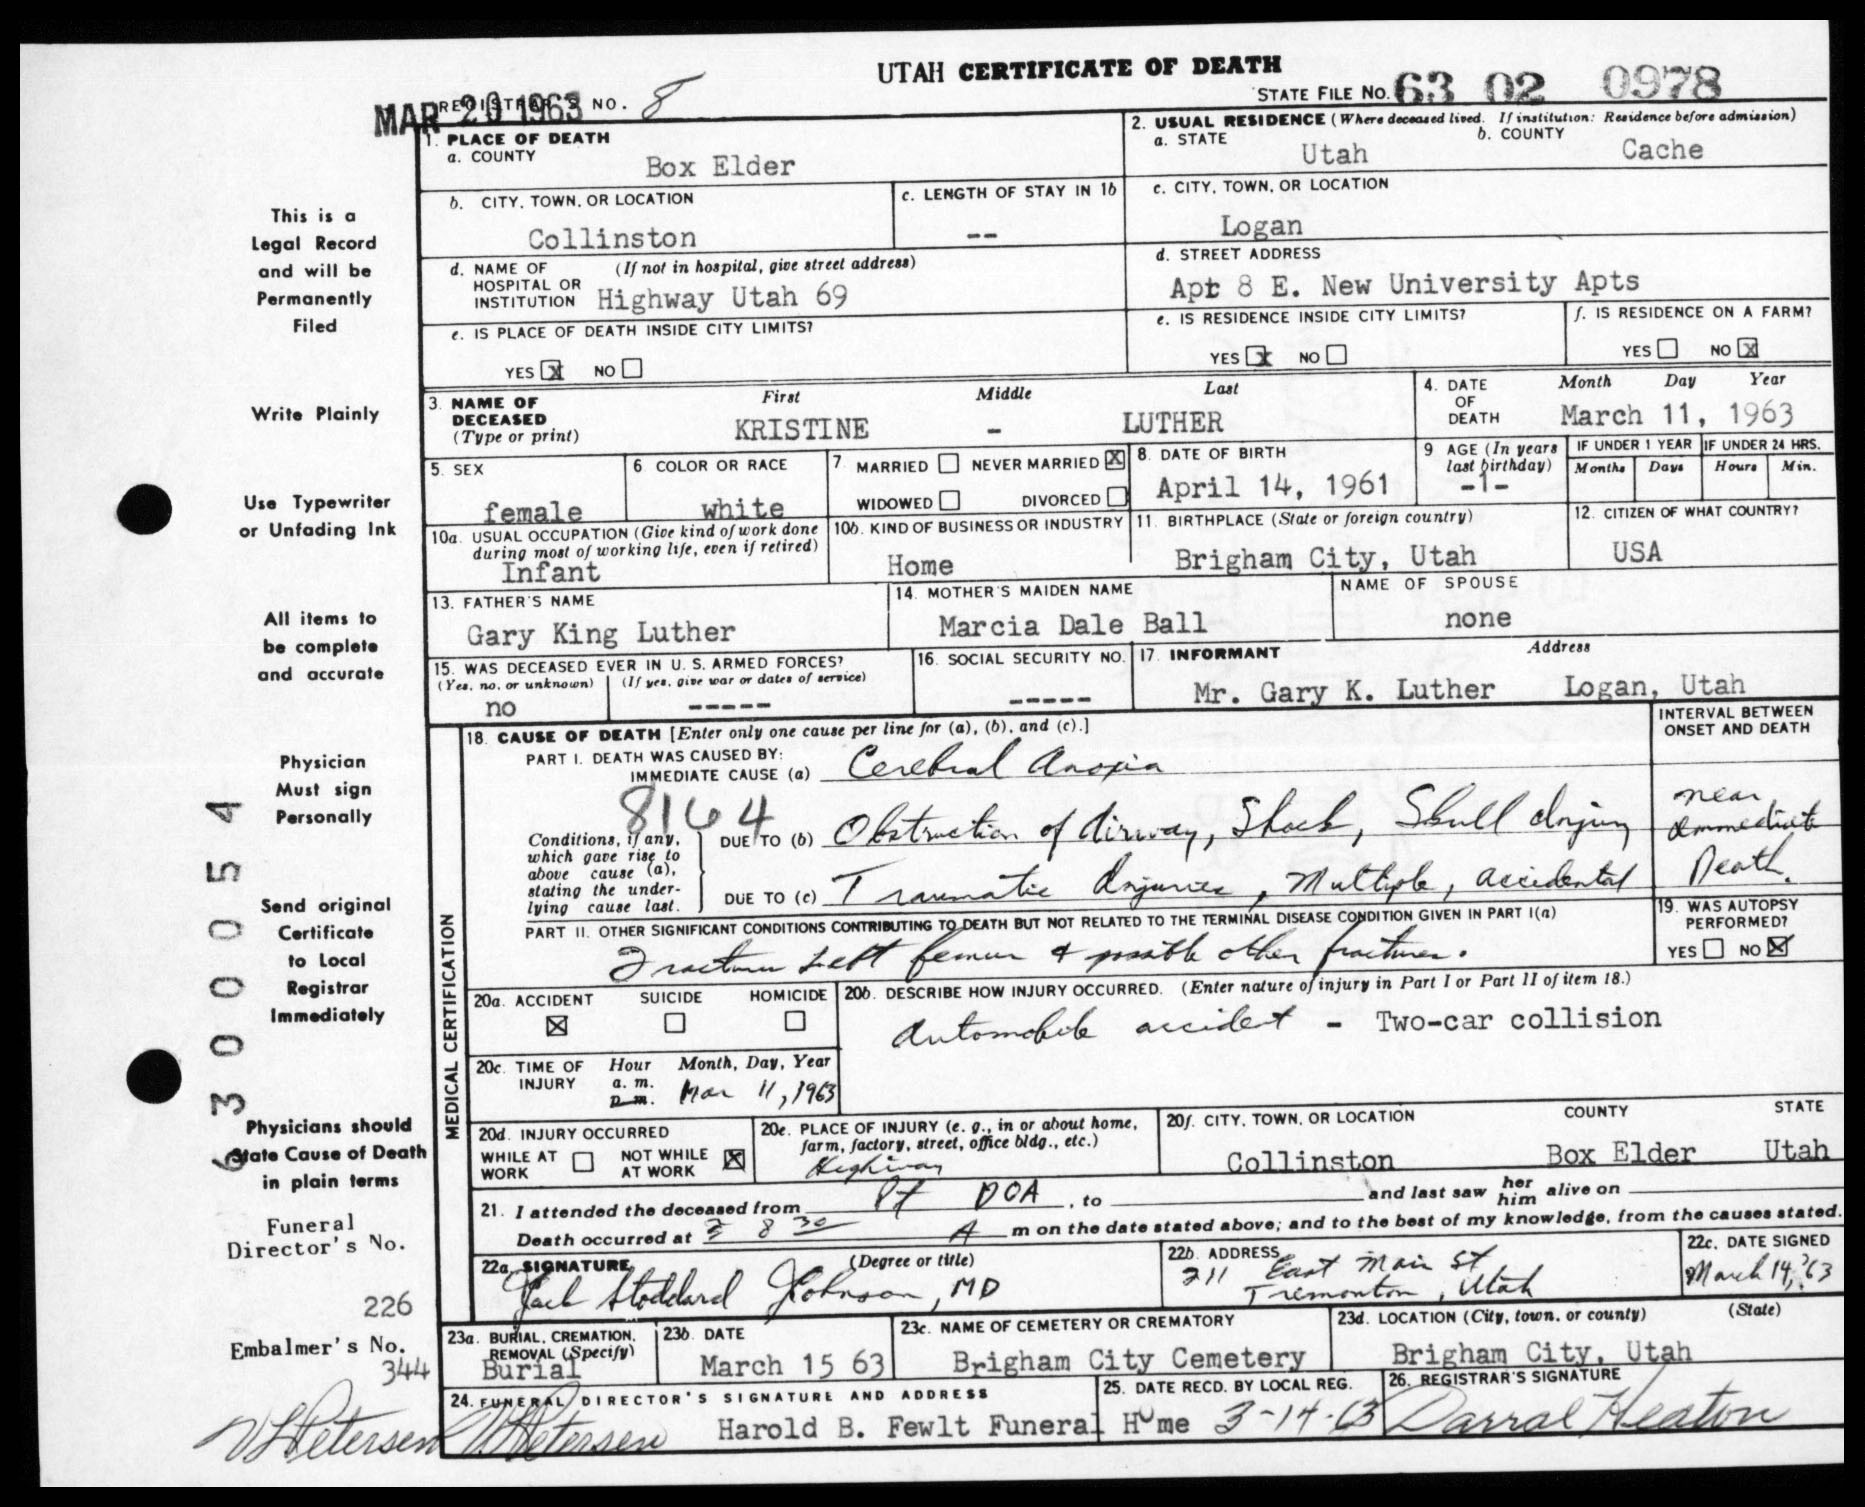 UTAH CERTIFICATE OF DEATH
STATE FILE NO. 63 02 0978
MAR 20 1963
REGISTRAR'S NO. 8
1. PLACE OF DEATH
a. COUNTY
Box Elder
2. USUAL RESIDENCE (Where deceased lived. If institution: Residence before admission)
a. STATE Utah b. COUNTY Cache
b. CITY, TOWN, OR LOCATION
Collinston
c. LENGTH OF STAY IN 1b
--
c. CITY, TOWN, OR LOCATION
Logan
d. NAME OF HOSPITAL OR INSTITUTION (If not in hospital, give street address)
Highway Utah 69
d. STREET ADDRESS
Apt 8 E. New University Apts
e. IS PLACE OF DEATH INSIDE CITY LIMITS?
YES X NO
e. IS RESIDENCE INSIDE CITY LIMITS?
YES X NO
f. IS RESIDENCE ON A FARM?
YES NO X
3. NAME OF DECEASED (Type or print)
First Middle Last
KRISTINE - LUTHER
4. DATE OF DEATH
Month Day Year
March 11, 1963
5. SEX
female
6 COLOR OR RACE
white
7. MARRIED NEVER MARRIED X
WIDOWED DIVORCED
8. DATE OF BIRTH
April 14, 1961
9 AGE (In years last birthday)
-1-
IF UNDER 1 YEAR
Months Days
IF UNDER 24 HRS.
Hours Min.
10a. USUAL OCCUPATION (Give kind of work done during most of working life, even if retired)
Infant
10b. KIND OF BUSINESS OR INDUSTRY
Home
11. BIRTHPLACE (State or foreign country)
Brigham City, Utah
12. CITIZEN OF WHAT COUNTRY?
USA
13. FATHER'S NAME
Gary King Luther
14. MOTHER'S MAIDEN NAME
Marcia Dale Ball
NAME OF SPOUSE
none
15. WAS DECEASED EVER IN U. S. ARMED FORCES?
(Yes, no, or unknown) (If yes, give war or dates of service)
no -----
16. SOCIAL SECURITY NO.
-----
17. INFORMANT Address
Mr. Gary K. Luther Logan, Utah
MEDICAL CERTIFICATION
18. CAUSE OF DEATH [Enter only one cause per line for (a), (b), and (c).]
INTERVAL BETWEEN ONSET AND DEATH
PART I. DEATH WAS CAUSED BY:
IMMEDIATE CAUSE (a) Cerebral Anoxia
8164
Conditions, if any, which gave rise to above cause (a), stating the underlying cause last.
DUE TO (b) Obstruction of Airway, Shock, Skull Injury
near immediate Death.
DUE TO (c) Traumatic Injuries, Multiple, accidental
PART II. OTHER SIGNIFICANT CONDITIONS CONTRIBUTING TO DEATH BUT NOT RELATED TO THE TERMINAL DISEASE CONDITION GIVEN IN PART I(a)
Fracture Left femur & possible other fractures.
19. WAS AUTOPSY PERFORMED?
YES NO X
20a. ACCIDENT SUICIDE HOMICIDE
X
20b. DESCRIBE HOW INJURY OCCURRED. (Enter nature of injury in Part I or Part II of item 18.)
Automobile accident - Two-car collision
20c. TIME OF INJURY
Hour Month, Day, Year
a. m.
p. m. Mar 11, 1963
20d. INJURY OCCURRED
WHILE AT WORK NOT WHILE AT WORK X
20e. PLACE OF INJURY (e. g., in or about home, farm, factory, street, office bldg., etc.)
Highway
20f. CITY, TOWN, OR LOCATION COUNTY STATE
Collinston Box Elder Utah
21. I attended the deceased from Pt DOA, to and last saw her him alive on
Death occurred at 8 30 A m on the date stated above; and to the best of my knowledge, from the causes stated.
22a. SIGNATURE (Degree or title)
Jack Stoddard Johnson, MD
22b. ADDRESS
211 East Main St
Tremonton, Utah
22c. DATE SIGNED
March 14, '63
23a. BURIAL, CREMATION, REMOVAL (Specify)
Burial
23b. DATE
March 15 63
23c. NAME OF CEMETERY OR CREMATORY
Brigham City Cemetery
23d. LOCATION (City, town, or county) (State)
Brigham City, Utah
24. FUNERAL DIRECTOR'S SIGNATURE AND ADDRESS
Petersen Harold B. Fewlt Funeral Home
25. DATE RECD. BY LOCAL REG.
3-14-63
26. REGISTRAR'S SIGNATURE
Darral Heaton
This is a
Legal Record
and will be
Permanently
Filed
Write Plainly
Use Typewriter
or Unfading Ink
All items to
be complete
and accurate
Physician
Must sign
Personally
Send original
Certificate
to Local
Registrar
Immediately
Physicians should
State Cause of Death
in plain terms
6300054
Funeral
Director's No.
226
Embalmer's No.
344
Petersen